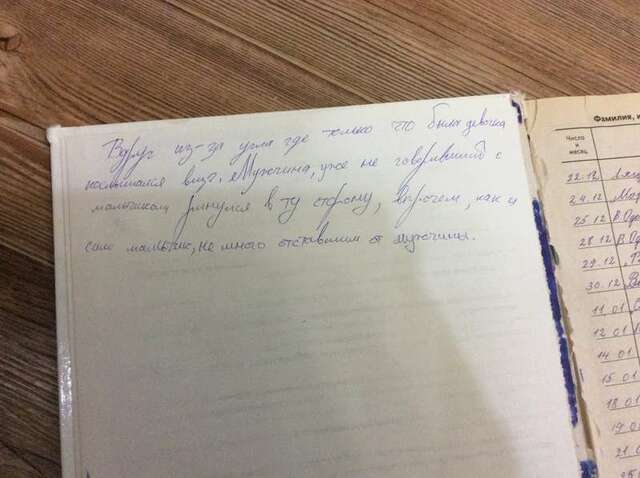 Вдруг из-за угла где только что была девочка
послышался визг. Мужчина, уже не говоривший с
мальчиком ринулся в ту сторону, впрочем, как и
сам мальчик, не много отставшим от мужчины.
Фамилия, и
Число
и
месяц
22.12
24.12
25.12 В.Ор
28.12 В.Ор
29.12
30.12
11.01
12.01
14.01
15.01
18.01
19.0
21.0